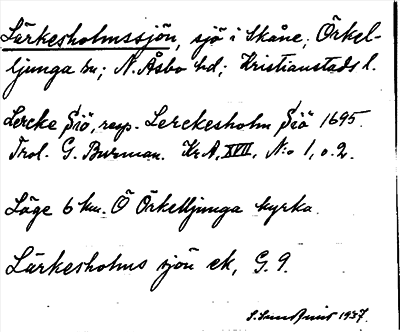 Lärkesholmssjön, sjö i Skåne; Örkel-
ljunga sn; N. Åsbo hd; Kristianstads l.
Lercke Siö, resp. Lerckesholm Siö 1695.
Trol. G. Burman. KrA, XVII, N:o 1, o. 2.
Läge 6 km. Ö Örkelljunga kyrka.
Lärkesholms sjön ek, G. 9.
1937.